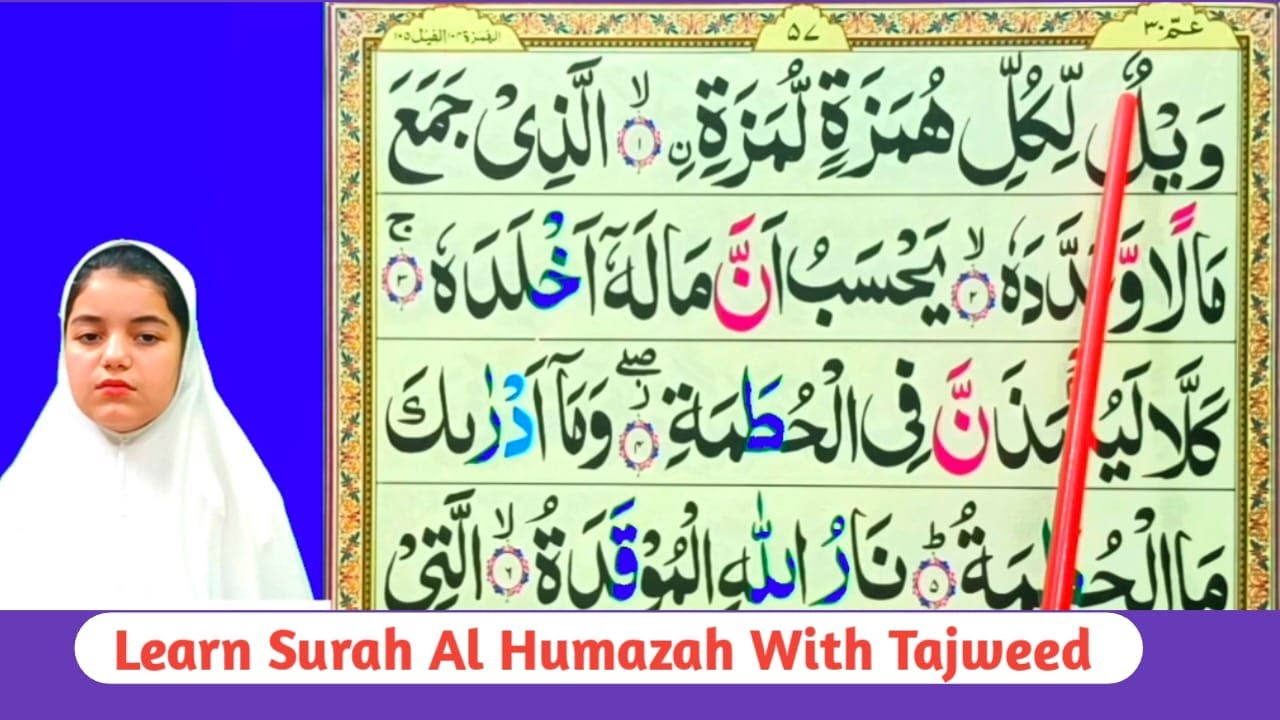 عمّ ٣٠
٥٧
الهمزة ١٠٤ الفیل ١٠٥
وَيْلٌ لِّكُلِّ هُمَزَةٍ لُّمَزَةِ ۙ﴿۱﴾ نِ الَّذِیْ جَمَعَ
مَالًا وَّعَدَّدَهٗ ۙ﴿۲﴾ یَحْسَبُ اَنَّ مَالَهٗۤ اَخْلَدَهٗ ۚ﴿۳﴾
كَلَّا لَیُنْۢبَذَنَّ فِی الْحُطَمَةِ ۖ﴿۴﴾ وَمَاۤ اَدْرٰىكَ
مَا الْحُطَمَةُ ؕ﴿۵﴾ نَارُ اللّٰهِ الْمُوْقَدَةُ ۙ﴿۶﴾ الَّتِیْ
Learn Surah Al Humazah With Tajweed